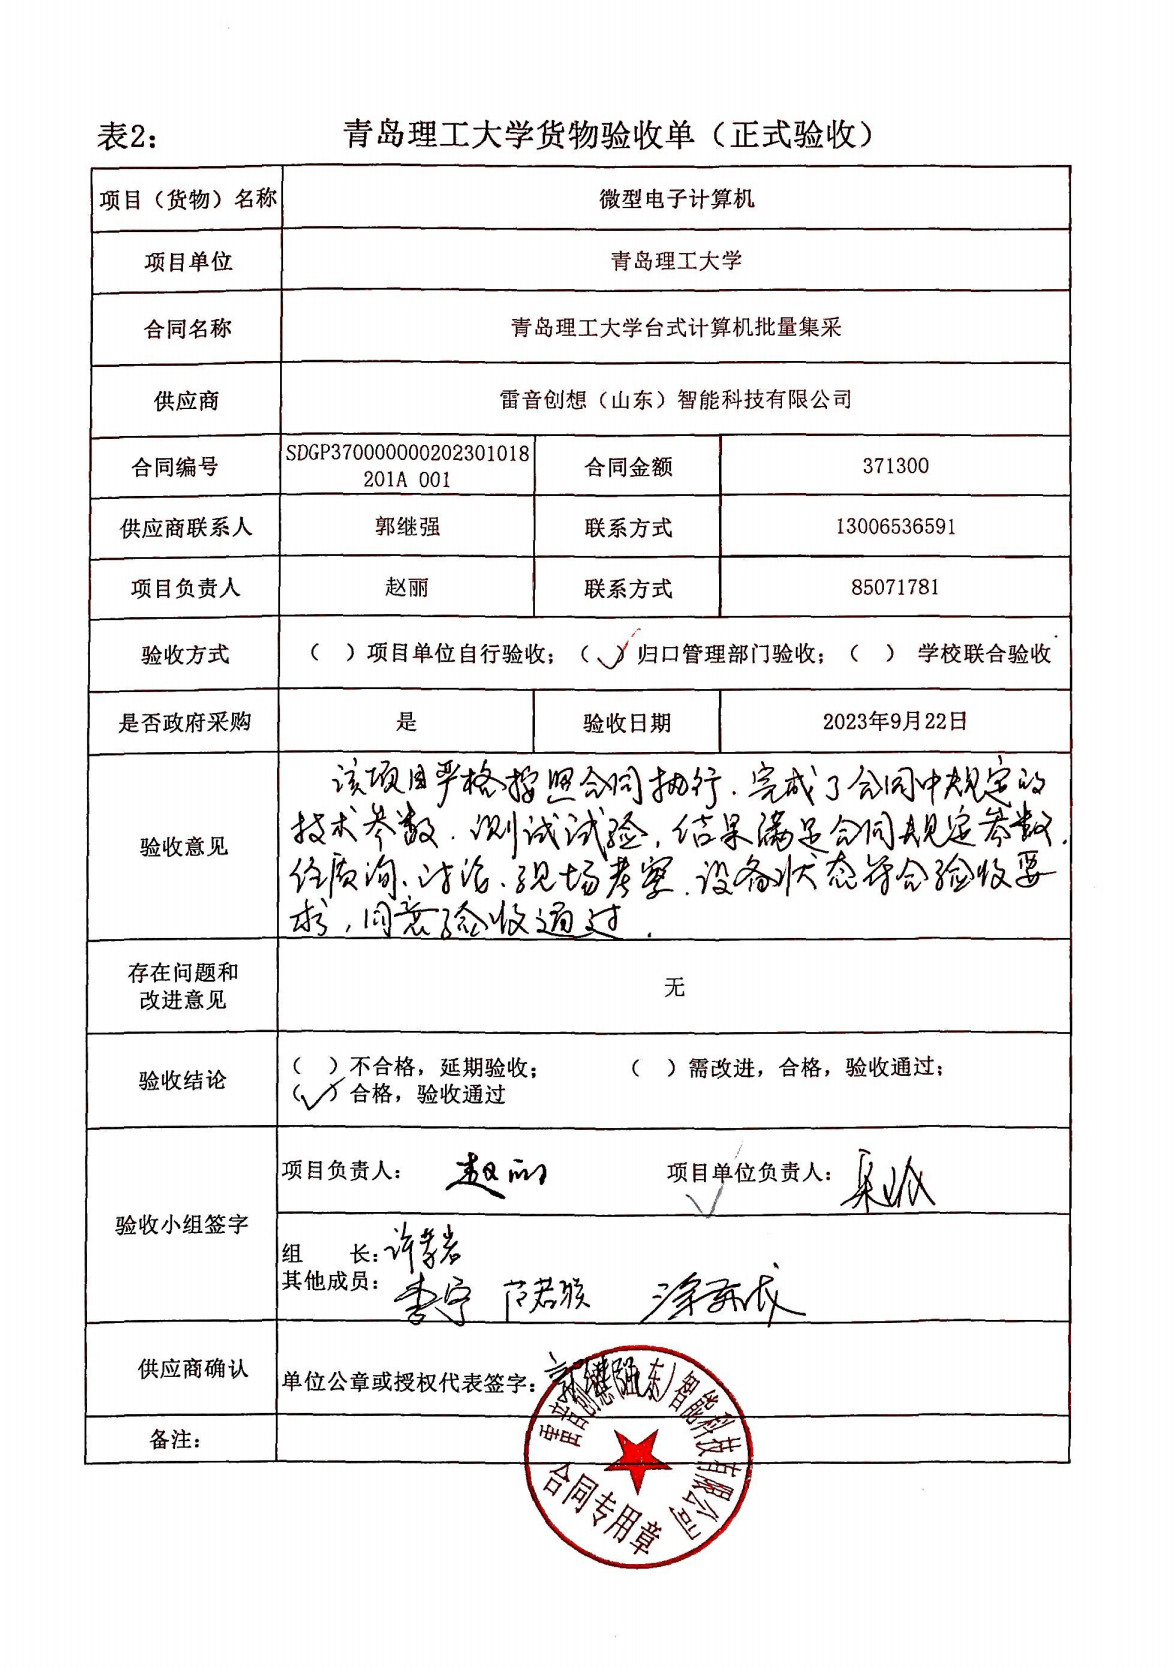 表2： 青岛理工大学货物验收单（正式验收）
项目（货物）名称 微型电子计算机
项目单位 青岛理工大学
合同名称 青岛理工大学台式计算机批量集采
供应商 雷音创想（山东）智能科技有限公司
合同编号 SDGP370000000202301018
201A 001 合同金额 371300
供应商联系人 郭继强 联系方式 13006536591
项目负责人 赵丽 联系方式 85071781
验收方式 （ ）项目单位自行验收；（✓）归口管理部门验收；（ ） 学校联合验收
是否政府采购 是 验收日期 2023年9月22日
验收意见
该项目严格按照合同执行.完成了合同中规定的
技术参数.测试试验,结果满足合同规定参数.
经质询、讨论、现场考察.设备状态符合验收要
求,同意验收通过.
存在问题和
改进意见 无
验收结论
（ ）不合格，延期验收； （ ）需改进，合格，验收通过；
（✓）合格，验收通过
验收小组签字
项目负责人： 赵丽 项目单位负责人：
组 长：许孝岩
其他成员： 李宁 范若琰
供应商确认 单位公章或授权代表签字：郭继强
雷音创想（山东）智能科技有限公司
合同专用章
备注：